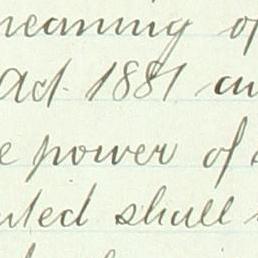 meaning of
Act 1881 an
e power of
uted shall